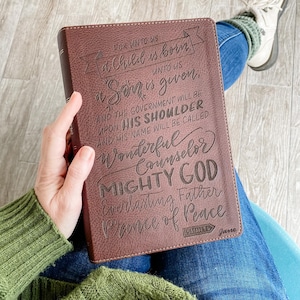 FOR UNTO US
a Child is born,
UNTO US
a Son is given,
AND THE GOVERNMENT WILL BE
UPON HIS SHOULDER
AND HIS NAME WILL BE CALLED
Wonderful
Counselor
MIGHTY GOD
Everlasting Father
Prince of Peace